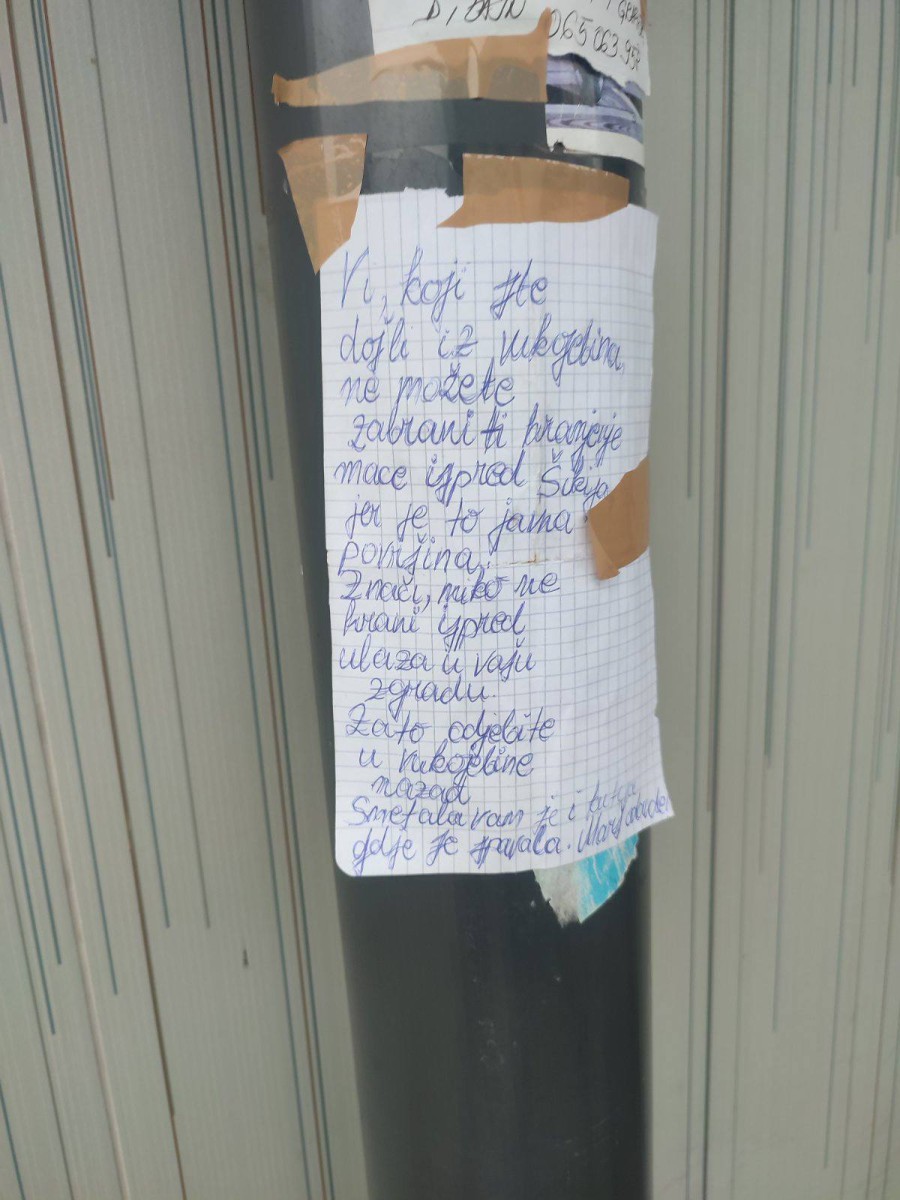 065 063 958
Vi, koji ste
došli iz vukojebina,
ne možete
zabraniti hranjenje
mace ispred Šikija
jer je to javna
površina.
Znači, niko ne
hrani ispred
ulaza u vašu
zgradu.
Zato odjebite
u vukojebine
nazad
Smetala vam je i kutija
gdje je spavala. Marš